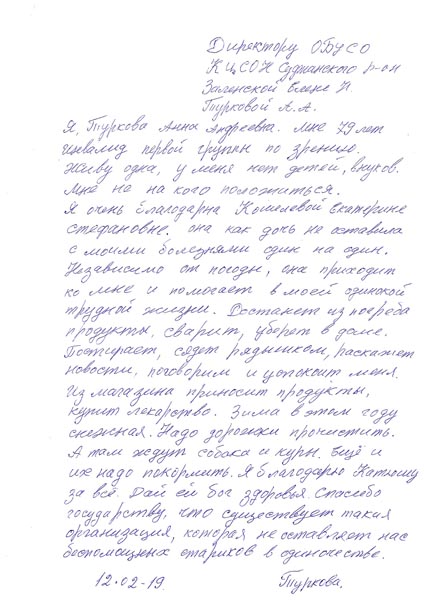 Директору ОБУСО
КЦСОН Суджанского р-он
Заленской Елене Н.
Турковой А.А.
Я, Туркова Анна Андреевна. Мне 79 лет
Инвалид первой группы по зрению.
Живу одна, у меня нет детей, внуков.
Мне не на кого положиться.
Я очень благодарна Кошелевой Екатерине
Стефановне. она как дочь не оставила
с моими болезнями один на один.
Независимо от погоды, она приходит
ко мне и помогает в моей одинокой
трудной жизни. Достанет из погреба
продукты, сварит, уберет в доме.
Постирает, сядет рядышком, раскажет
новости, поговорим и успокоит меня.
Из магазина приносит продукты,
купит лекарство. Зима в этом году
снежная. Надо дорожки прочистить.
А там ждут собака и куры. Ещё и
их надо покормить. Я благодарю Катюшу
за всё. Дай ей бог здоровья. Спасибо
государству, что существует такая
организация, которая не оставляет нас
беспомощных стариков в одиночестве.
12.02-19. Туркова.